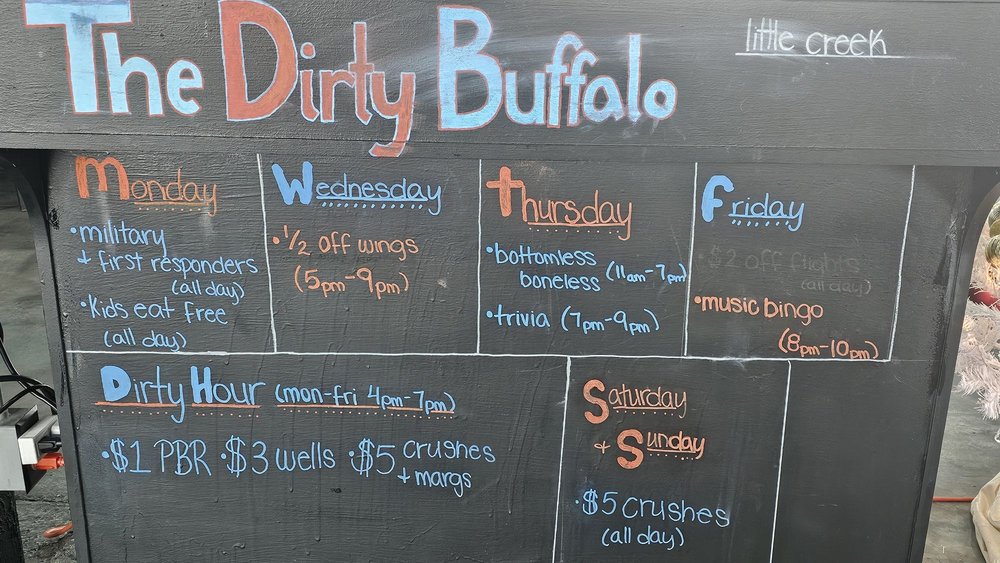 The Dirty Buffalo
little creek
Monday
•military
+ first responders
(all day)
•Kids eat free
(all day)
Wednesday
•1/2 off wings
(5pm-9pm)
Thursday
•bottomless
boneless (11am-7pm)
•trivia (7pm-9pm)
Friday
•$2 off flights
(all day)
•music bingo
(8pm-10pm)
Dirty Hour (mon-fri 4pm-7pm)
•$1 PBR •$3 wells •$5 crushes
+ margs
Saturday
+ Sunday
•$5 crushes
(all day)